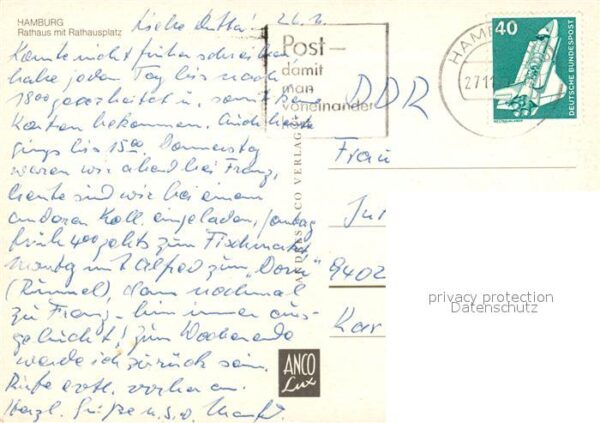 HAMBURG
Rathaus mit Rathausplatz
Liebe Mutter! 26.11.
Konnte nicht früher schreiben,
habe jeden Tag bis nach
18°° gearbeitet u. somit keine
Karten bekommen. Auch heute
gings bis 15°°. Donnerstag
waren wir abend bei Franz,
heute sind wir bei einem
anderen Koll. eingeladen, Sonntag
früh 4°° gehts zum Fischmarkt
Montag mit Alfred zum „Dom"
(Rummel), dann nochmal
zu Franz – bin immer aus-
gebucht! Zum Wochenende
werde ich zurück sein.
Rufe evtl. vorher an.
Herzl. Grüße u.s.w.
Post –
damit
man
voneinander
hört
HAMBURG
27.11.
40
DEUTSCHE BUNDESPOST
DDR
Frau
9402
ANDRES + CO VERLAG
ANCO
Lux
privacy protection
Datenschutz